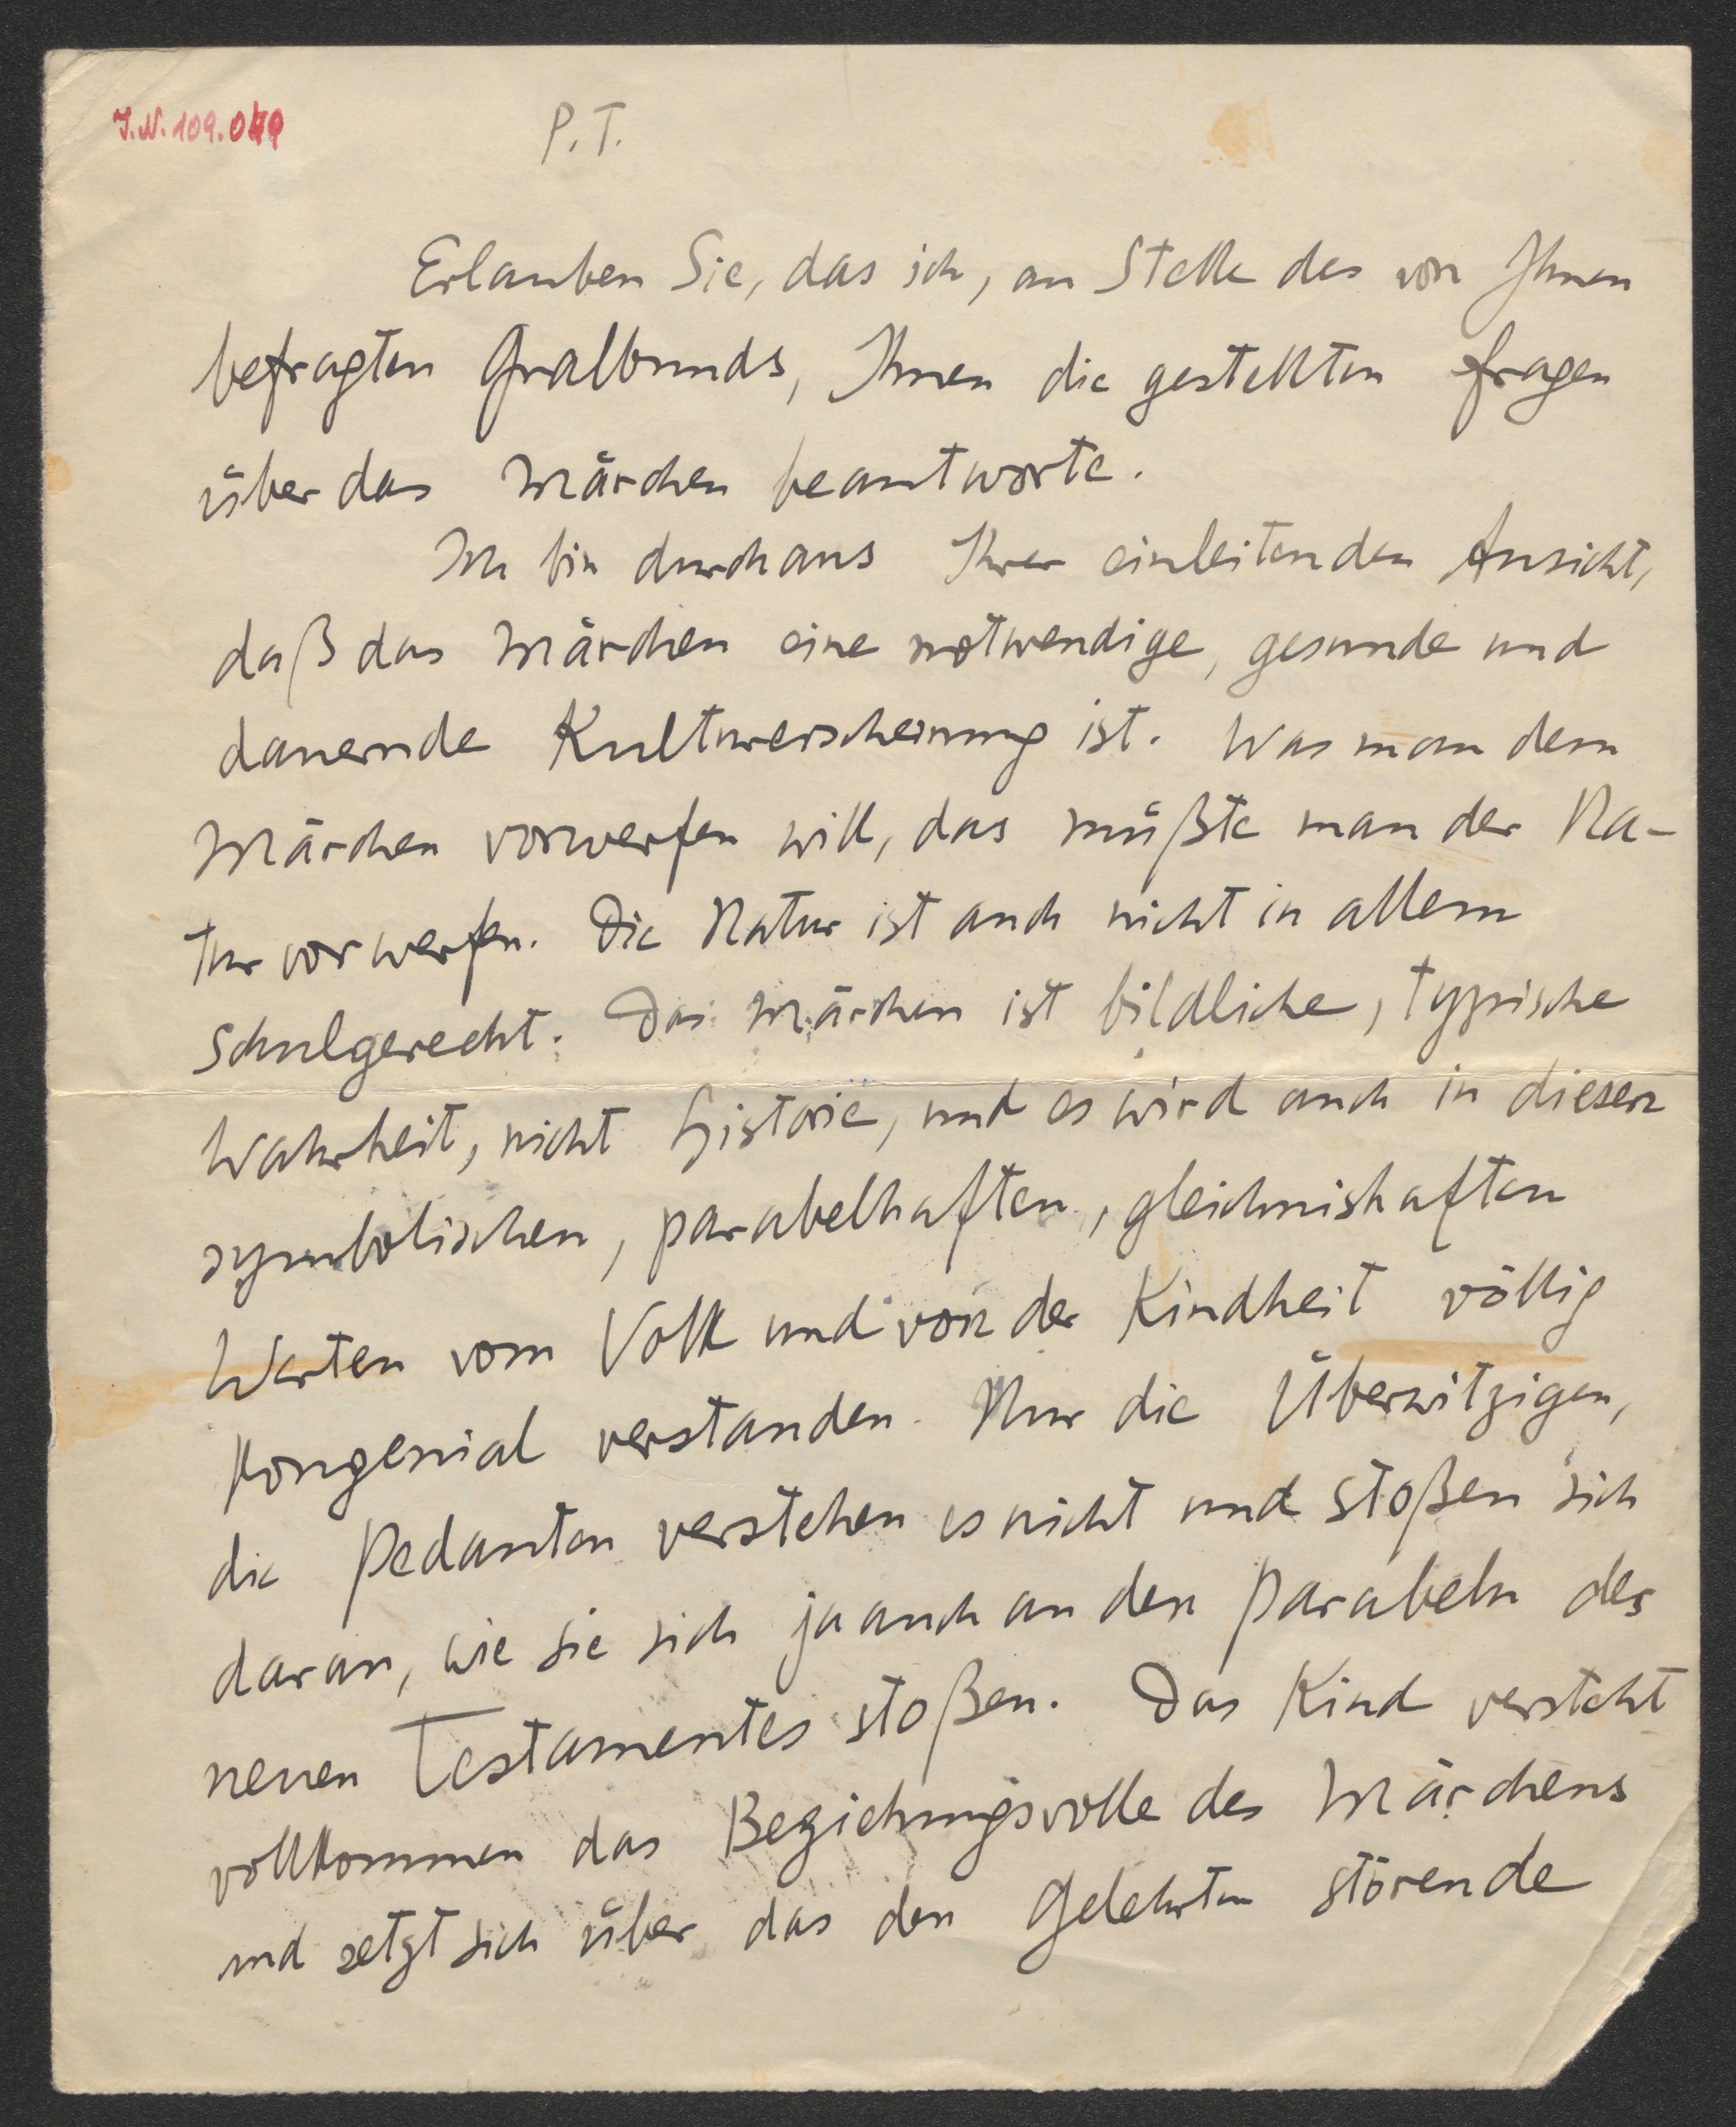 J.N. 109.049
P. T.
Erlauben Sie, das ich, an Stelle des von Ihnen
befragten Gralbunds, Ihnen die gestellten Fragen
über das Märchen beantworte.
Ich bin durchaus Ihrer einleitenden Ansicht,
daß das Märchen eine notwendige, gesunde und
dauernde Kulturerscheinung ist. Was man dem
Märchen vorwerfen will, das müßte man der Na-
tur vorwerfen. Die Natur ist auch nicht in allem
schulgerecht. Das Märchen ist bildliche, typische
Wahrheit, nicht Historie, und es wird auch in diesen
symbolischen, parabelhaften, gleichnishaften
Werten vom Volk und von der Kindheit völlig
kongenial verstanden. Nur die Überwitzigen,
die Pedanten verstehen es nicht und stoßen sich
daran, wie sie sich ja auch an den Parabeln des
neuen Testamentes stoßen. Das Kind versteht
vollkommen das Beziehungsvolle des Märchens
und setzt sich über das den Gelehrten störende